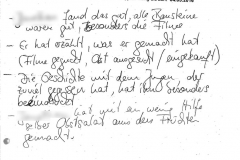 - fand das gut, alle Bausteine
waren gut, besonders die Filme
- Er hat erzählt, was er gemacht hat
(Filme geguckt, Obst ausgesucht / eingekauft)
- Die Geschichte mit dem Jungen, der
zuviel gegessen hat, hat ihn besonders
beeindruckt
- hat mit ein wenig Hilfe
selber Obstsalat aus den Früchten
gemacht.